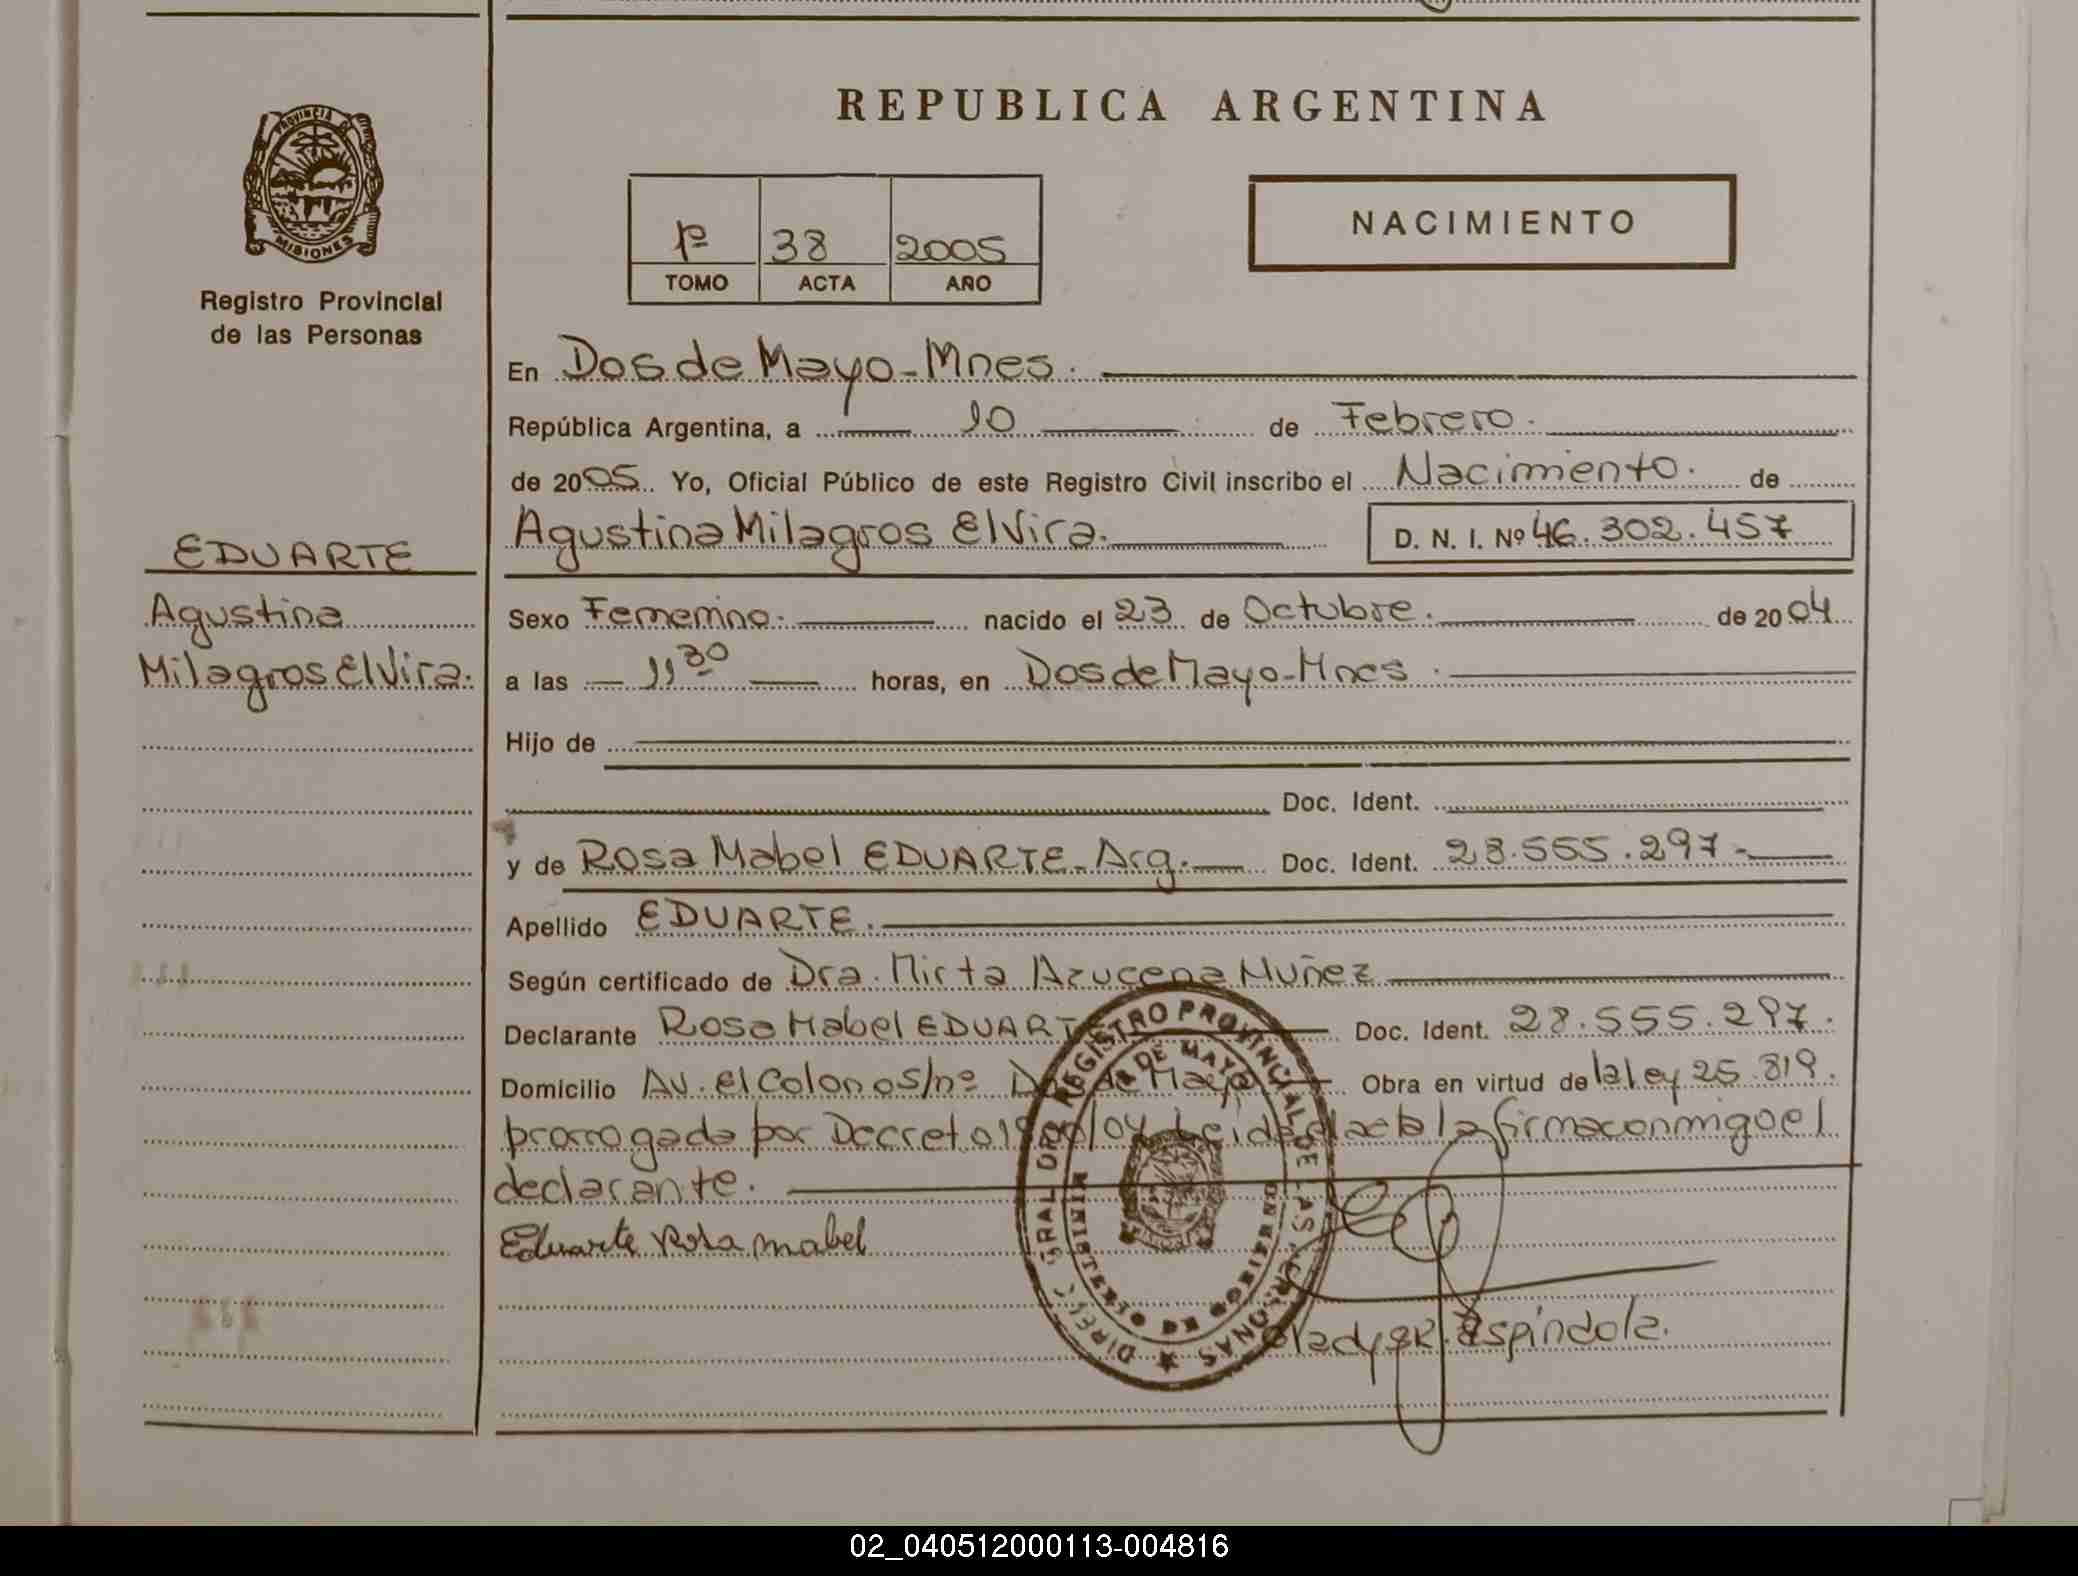 REPUBLICA ARGENTINA
PROVINCIA DE
MISIONES
Registro Provincial
de las Personas
1º 38 2005
TOMO ACTA AÑO
NACIMIENTO
En Dos de Mayo-Mnes.
República Argentina, a 10 de Febrero.
de 2005 Yo, Oficial Público de este Registro Civil inscribo el Nacimiento. de
Agustina Milagros Elvira. D. N. I. Nº 46.302.457
EDUARTE
Agustina
Milagros Elvira.
Sexo Femenino. nacido el 23 de Octubre. de 2004
a las 11 30 horas, en Dos de Mayo-Mnes.
Hijo de
Doc. Ident.
y de Rosa Mabel EDUARTE-Arg. Doc. Ident. 28.555.297-
Apellido EDUARTE.
Según certificado de Dra. Mirta Azucena Muñez
Declarante Rosa Mabel EDUARTE Doc. Ident. 28.555.297.
Domicilio Av. el Colono s/nº Dos de Mayo Obra en virtud de la ley 25.819.
prorrogada por Decreto /04 Leida el acta la firma conmigo el
declarante.
Eduarte Rosa mabel
REGISTRO PROVINCIAL DE LAS PERSONAS
2 DE MAYO
MINISTERIO DE GOBIERNO
Gladys R. Espíndola.
02_040512000113-004816